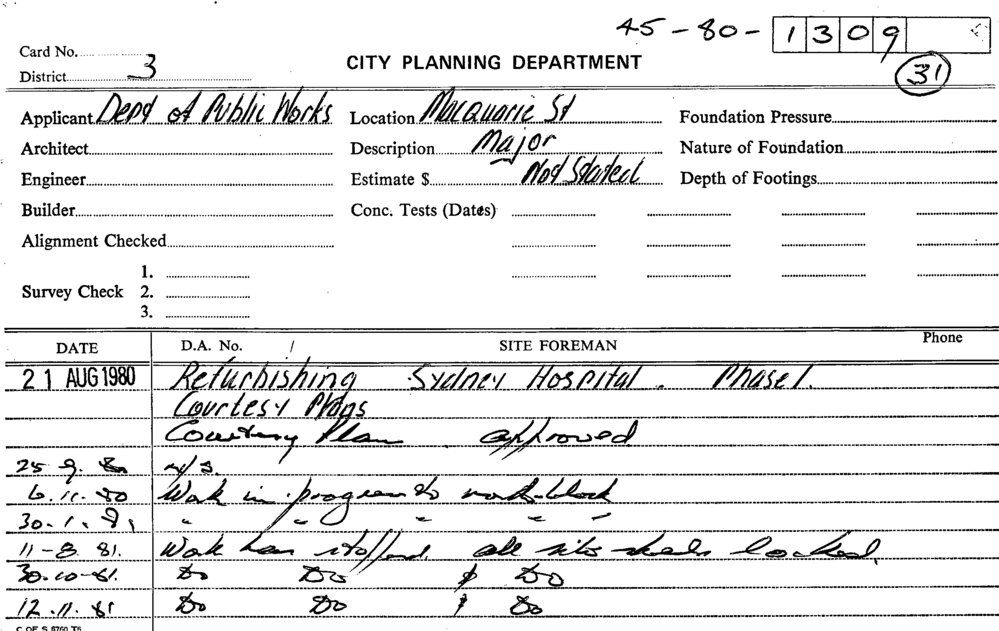 45-80-1309
Card No.
District 3
CITY PLANNING DEPARTMENT
31
Applicant Dept of Public Works Location Macquarie St Foundation Pressure
Architect Description Major Nature of Foundation
Engineer Estimate $ Not Started Depth of Footings
Builder Conc. Tests (Dates)
Alignment Checked
1.
Survey Check 2.
3.
DATE D.A. No. / SITE FOREMAN Phone
21 AUG 1980 Refurbishing Sydney Hospital. Phase 1.
Courtesy Plans
Courtesy Plan approved
25.9.80 n/s.
6.11.80 Work in progress to north block
30.1.81 " " " " "
11-8.81. Work has stopped. all site sheds locked.
30.10-81. Do Do & Do
12.11.81 Do Do & Do
C OF S 8760 T5